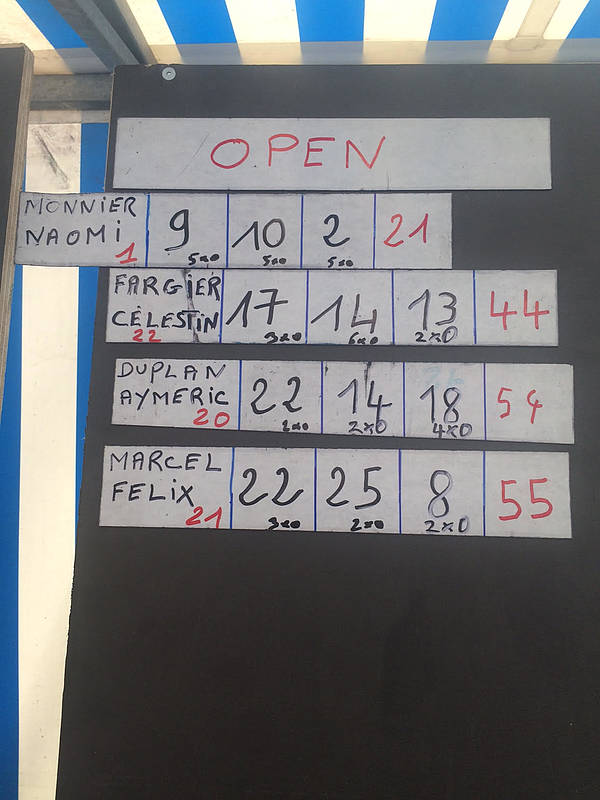 OPEN
MONNIER 9 10 2 21
NAOMI 1 5x0 5x0 5x0
FARGIER 17 14 13 44
CÉLESTIN 22 3x0 6x0 2x0
DUPLAN 22 14 18 54
AYMERIC 20 2x0 2x0 4x0
MARCEL 22 25 8 55
FELIX 21 3x0 2x0 2x0